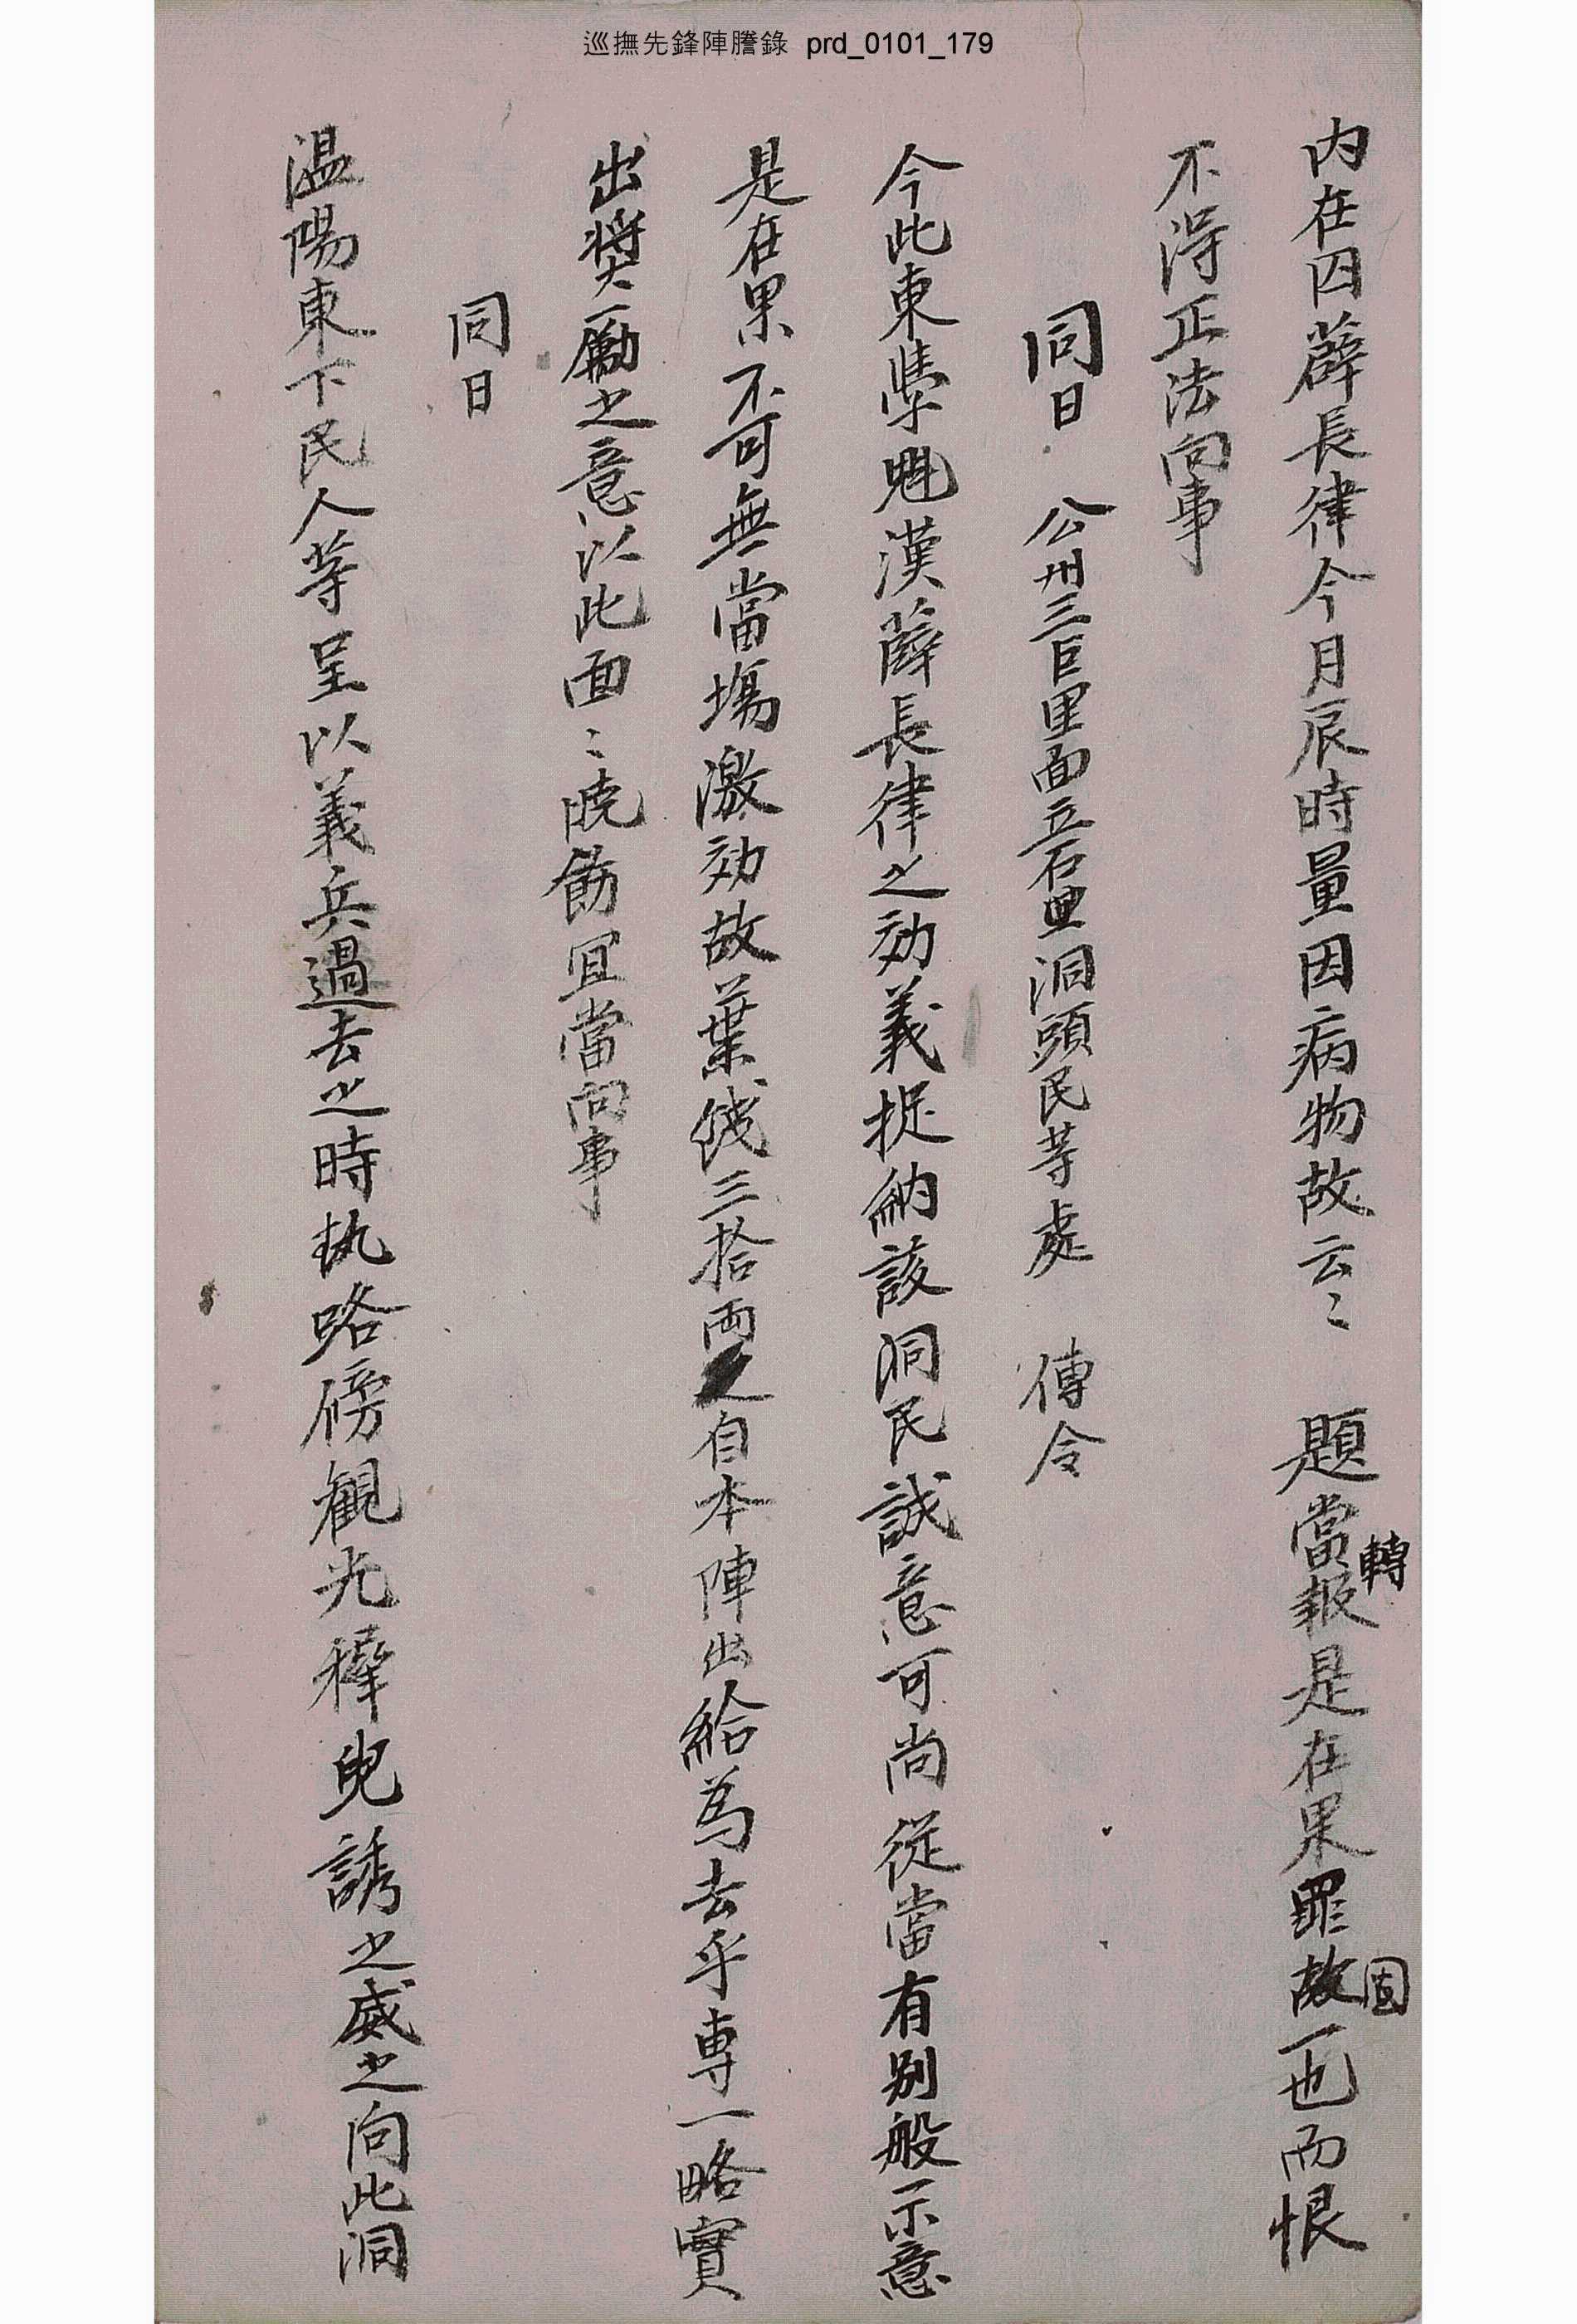 巡撫先鋒陣謄錄 prd_0101_179
內在囚薛長律今月辰時量因病物故云〻 題當轉報是在果罪故固一也而恨
不得正法向事
同日 公州三巨里面立石里洞頭民等處 傳令
今此東學魁漢薛長律之効義捉納該洞民誠意可尚從當有別般示意
是在果不可無當場激効故葉錢三拾兩 自本陣出給為去乎專一略實
出奬勵之意以此面〻曉飭宜當向事
同日
溫陽東下民人等呈以義兵過去之時執路傍觀光 誘之威之向此洞